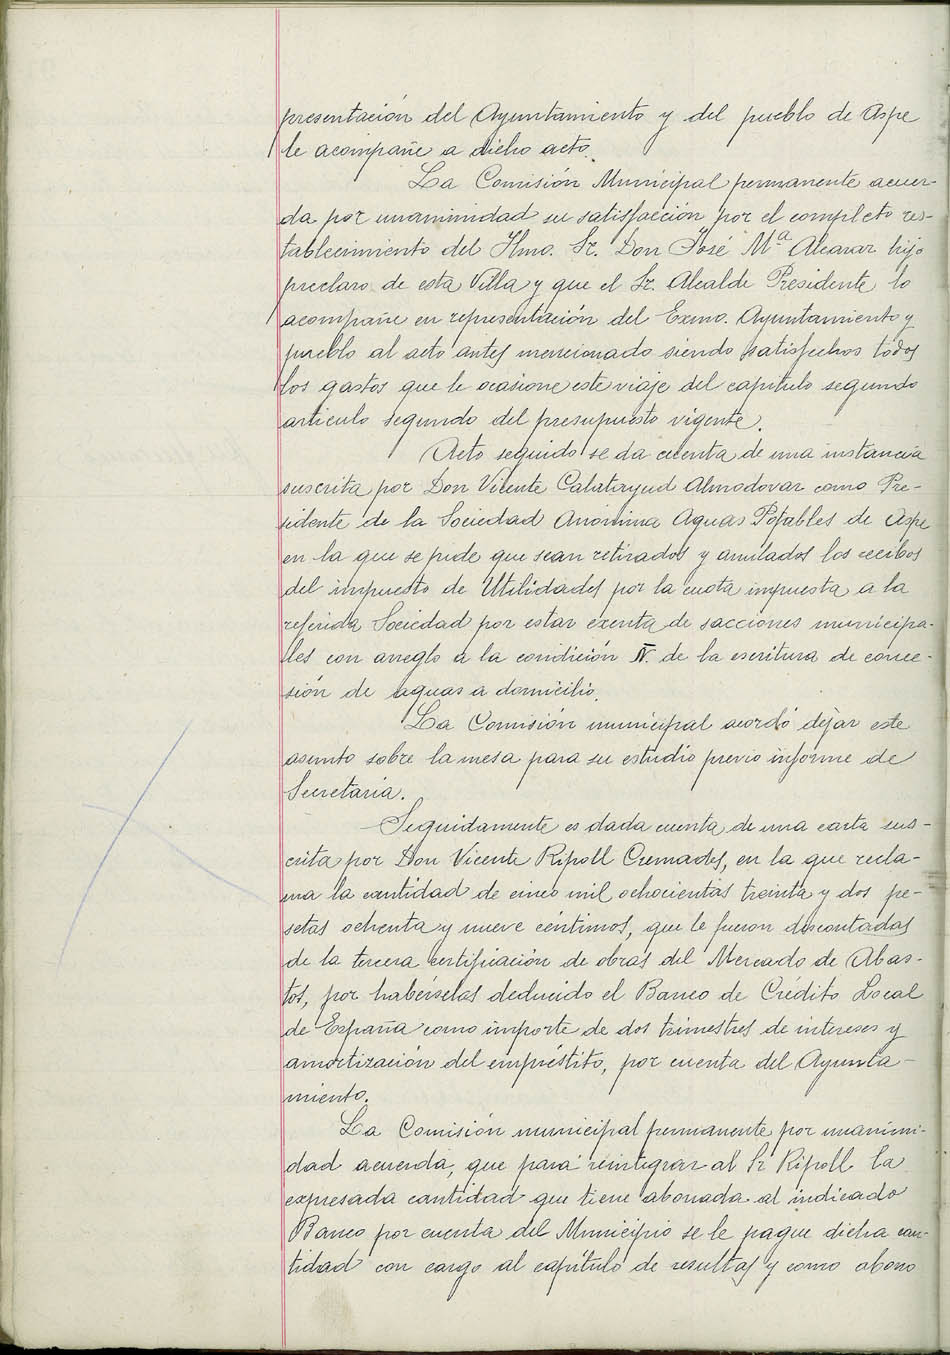 presentación del Ayuntamiento y del pueblo de Aspe
le acompañe a dicho acto.
La Comisión Municipal permanente acuer-
da por unanimidad su satisfacción por el completo res-
tablecimiento del Ilmo. Sr. Don José Mª Alcaraz hijo
preclaro de esta Villa y que el Sr. Alcalde Presidente lo
acompañe en representación del Excmo. Ayuntamiento y
pueblo al acto antes mencionado siendo satisfechos todos
los gastos que le ocasione este viaje del capitulo segundo
articulo segundo del presupuesto vigente.
Acto seguido se da cuenta de una instancia
suscrita por Don Vicente Calatayud Almodovar como Pre-
sidente de la Sociedad Anonima Aguas Potables de Aspe
en la que se pide que sean retirados y anulados los recibos
del impuesto de Utilidades por la cuota impuesta a la
referida Sociedad por estar exenta de sacciones municipa-
les con arreglo a la condición IV. de la escritura de conce-
sión de aguas a domicilio.
La Comisión municipal acordó dejar este
asunto sobre la mesa para su estudio previo informe de
Secretaria.
Seguidamente es dada cuenta de una carta sus-
crita por Don Vicente Ripoll Cremades, en la que recla-
ma la cantidad de cinco mil ochocientas treinta y dos pe-
setas ochenta y nueve céntimos, que le fueron descontadas
de la tercera certificación de obras del Mercado de Abas-
tos, por habérselas deducido el Banco de Crédito Local
de España como importe de dos trimestres de intereses y
amortización del empréstito, por cuenta del Ayunta-
miento.
La Comisión municipal permanente por unanimi-
dad acuerda, que para reintegrar al Sr Ripoll la
expresada cantidad que tiene abonada al indicado
Banco por cuenta del Municipio se le pague dicha can-
tidad con cargo al capítulo de resultas y como abono